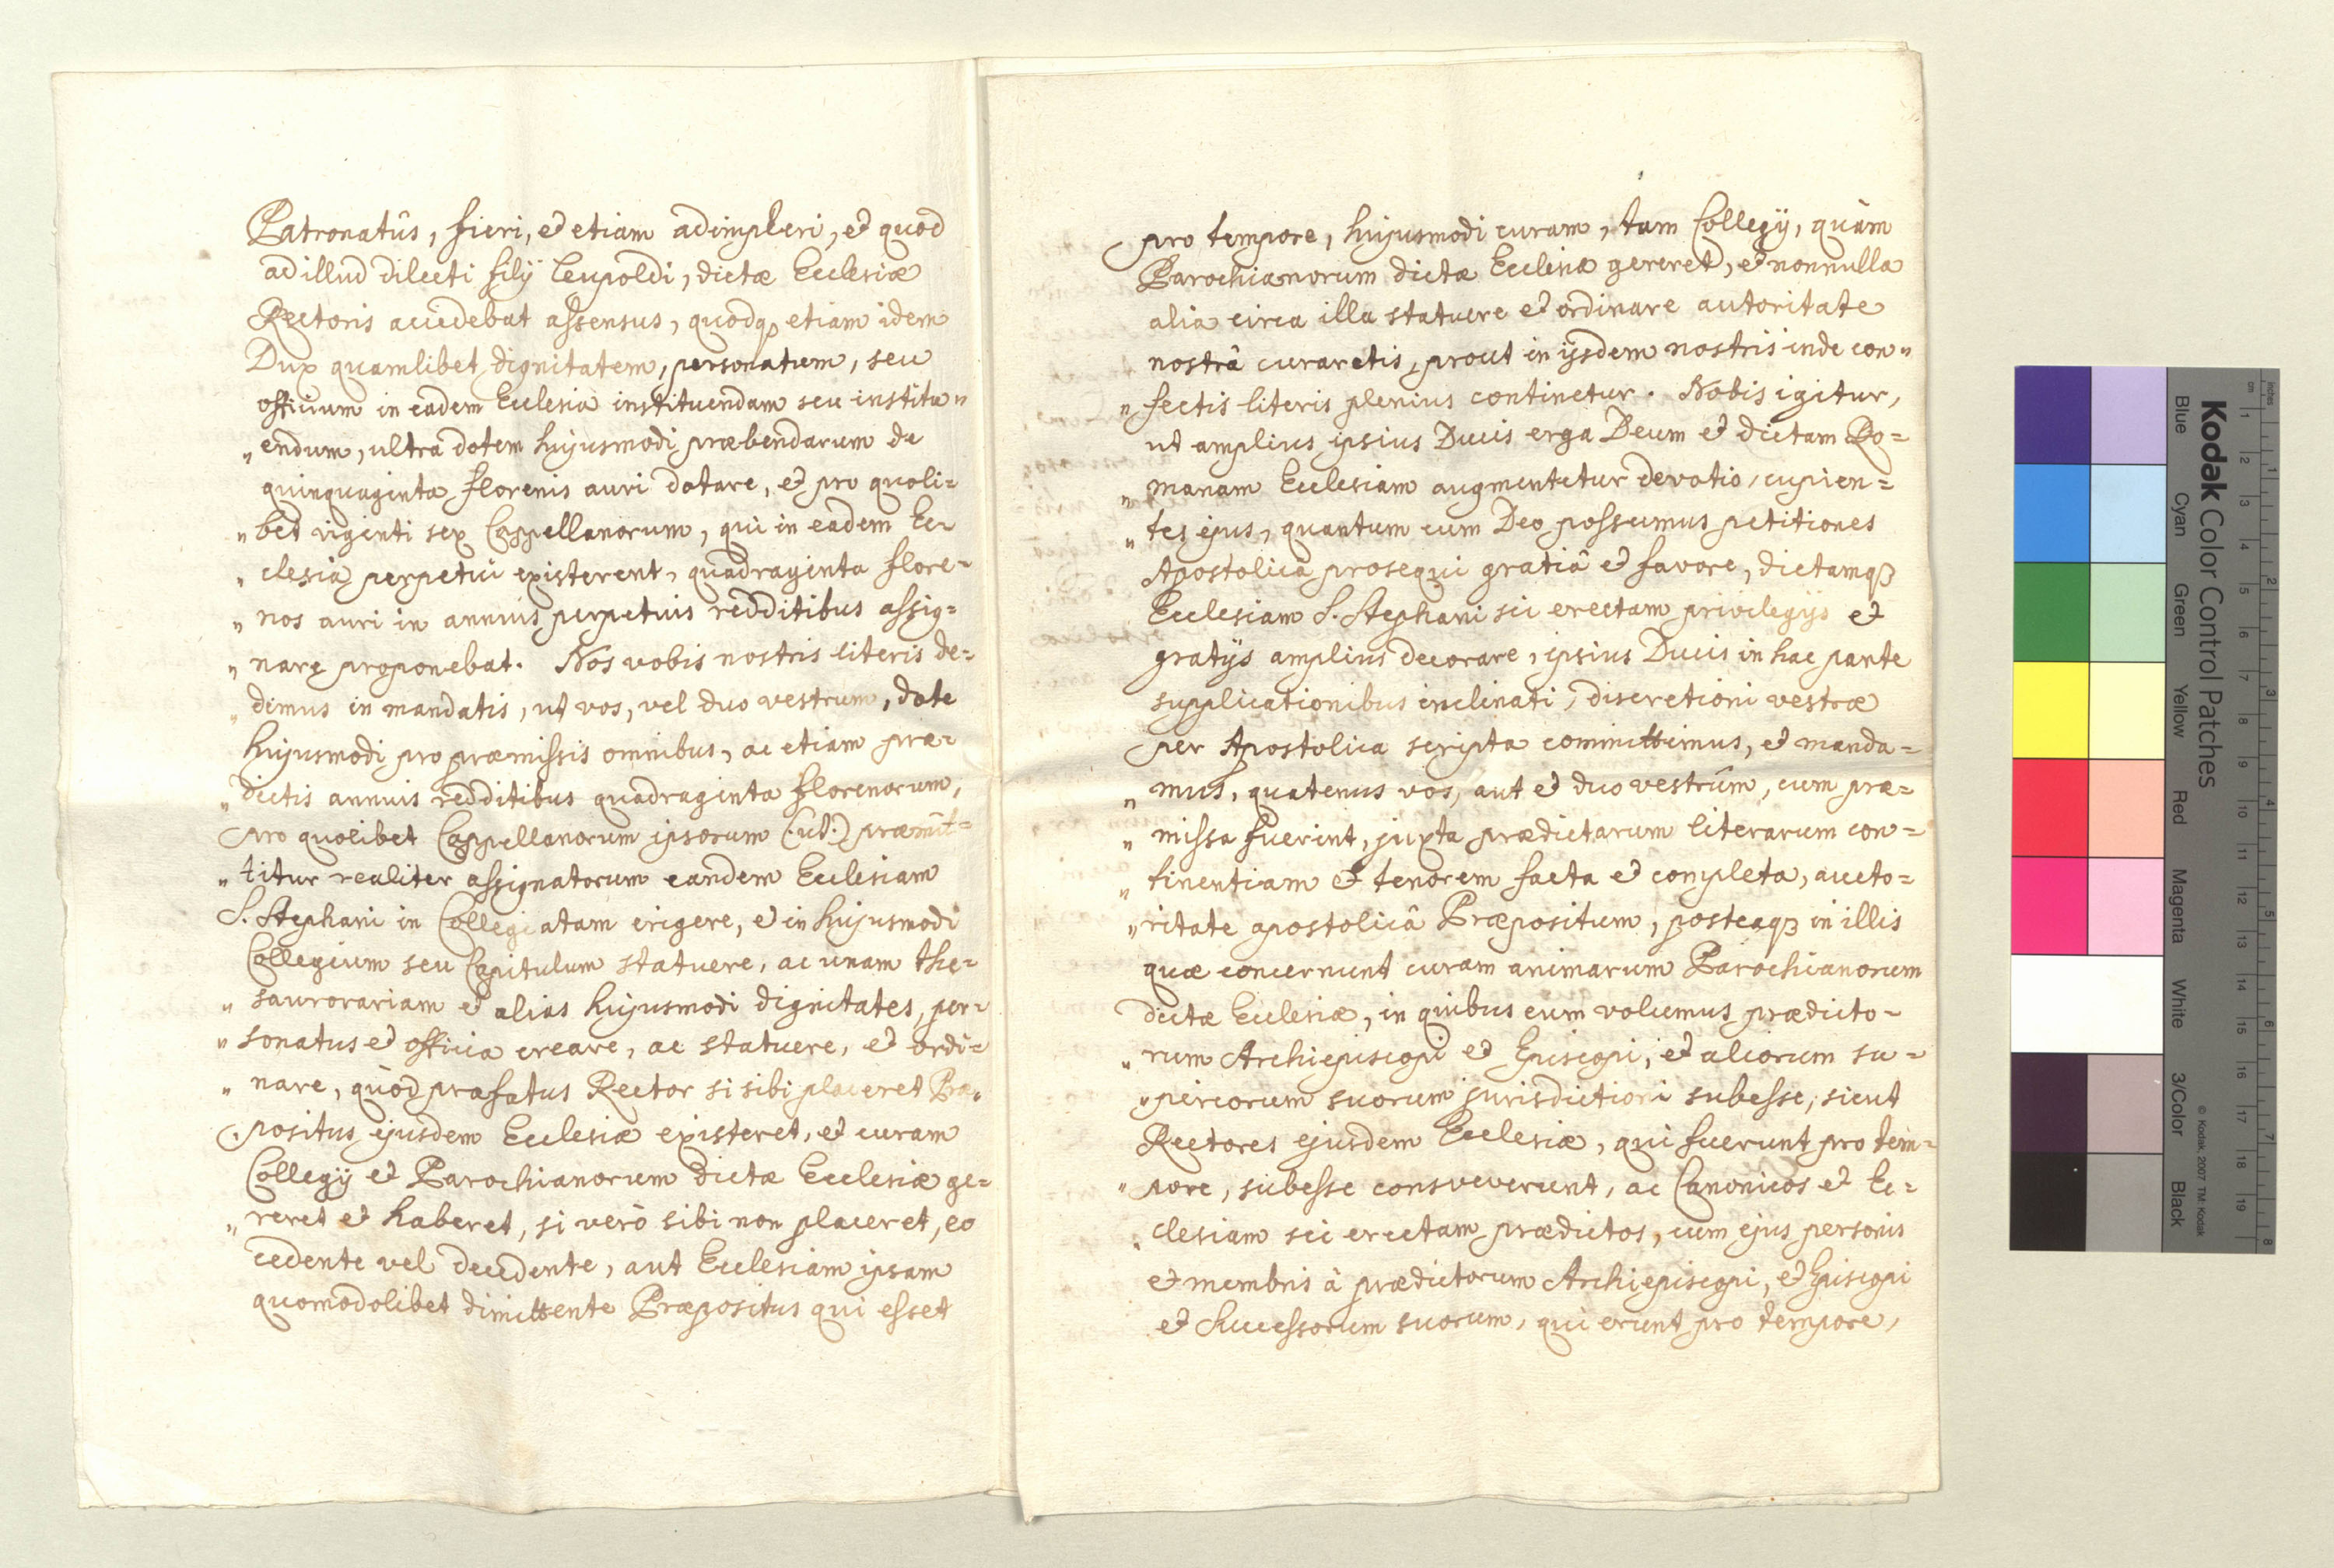 Patronatûs, fieri, et etiam adimpleri, et quod
ad illud dilecti filÿ Leupoldi, dictæ Ecclesiæ
Rectoris accedebat assensus, quodq etiam idem
Dux quamlibet dignitatem, personatum, seu
officium in eadem Ecclesia instituendam seu institu„
„endum, ultra dotem hujusmodi præbendarum de
quinquaginta florenis auri dotare, et pro quoli=
„bet viginti sex Cappellanorum, qui in eadem Ec=
„clesia perpetui existerent, quadraginta flore=
„nos auri in annuis perpetuis redditibus assig=
„nare proponebat. Nos vobis nostris literis de=
„dimus in mandatis, ut vos, vel duo vestrum, dote
hujusmodi pro præmissis omnibus, ac etiam præ=
„dictis annuis redditibus quadraginta florenorum,
pro quolibet Cappellanorum ipsorum (:ut:) præmit=
„titur realiter assignatorum eandem Ecclesiam
S. Stephani in Collegiatam erigere, et in hujusmodi
Collegium seu Capitulum statuere, ac unam the=
„saurorariam et alias hujusmodi dignitates, per=
„sonatus et officia creare, ac statuere, et ordi=
„nare, quòd præfatus Rector si sibi placeret Præ„
„positus ejusdem Ecclesiæ existeret, et curam
Collegÿ et Parochianorum dictæ Ecclesiæ ge=
„reret et haberet, si verò sibi non placeret, eo
cedente vel decedente, aut Ecclesiam ipsam
quomodolibet dimittente Præpositus qui esset
pro tempore, hujusmodi curam, tam Collegÿ, quàm
Parochianorum dictæ Ecclesiæ gereret, et nonnulla
alia circa illa statuere et ordinare autoritate
nostrâ curaretis, prout in ijsdem nostris inde con„
„fectis literis plenius continetur. Nobis igitur,
ut amplius ipsius Ducis erga Deum et dictam Ro=
„manam Ecclesiam augmentetur devotio, cupien=
„tes ejus, quantum cum Deo possumus petitiones
Apostolicâ prosequi gratiâ et favore, dictamqꝫ
Ecclesiam S. Stephani sic erectam privilegÿs et
gratÿs amplius decorare, ipsius Ducis in hac parte
supplicationibus inclinati, discretioni vestræ
per Apostolica scripta committimus, et manda=
„mus, quatenus vos, aut et duo vestrûm, cum præ=
„missa fuerint, juxta prædictarum literarum con=
„tinentiam et tenorem facta et completa, aucto=
„ritate apostolicâ Præpositum, posteaqꝫ in illis
quæ concernunt curam animarum Parochianorum
dictæ Ecclesiæ, in quibus eum volumus prædicto=
„rum Archiepiscopi et Episcopi, et aliorum su=
„periorum suorum jurisdictioni subesse, sicut
Rectores ejusdem Ecclesiæ, qui fuerunt pro tem=
„pore, subesse consveverunt, ac Canonicos et Ec=
„clesiam sic erectam prædictos, cum ejus personis
et membris à prædictorum Archiepiscopi, et Episcopi
et Successorum suorum, qui erunt pro tempore,
Kodak Color Control Patches
Blue Cyan Green Yellow Red Magenta White 3/Color Black
© Kodak, 2007 TM: Kodak
inches 1 2 3 4 5 6 7 8
cm 1 2 3 4 5 6 7 8 9 10 11 12 13 14 15 16 17 18 19